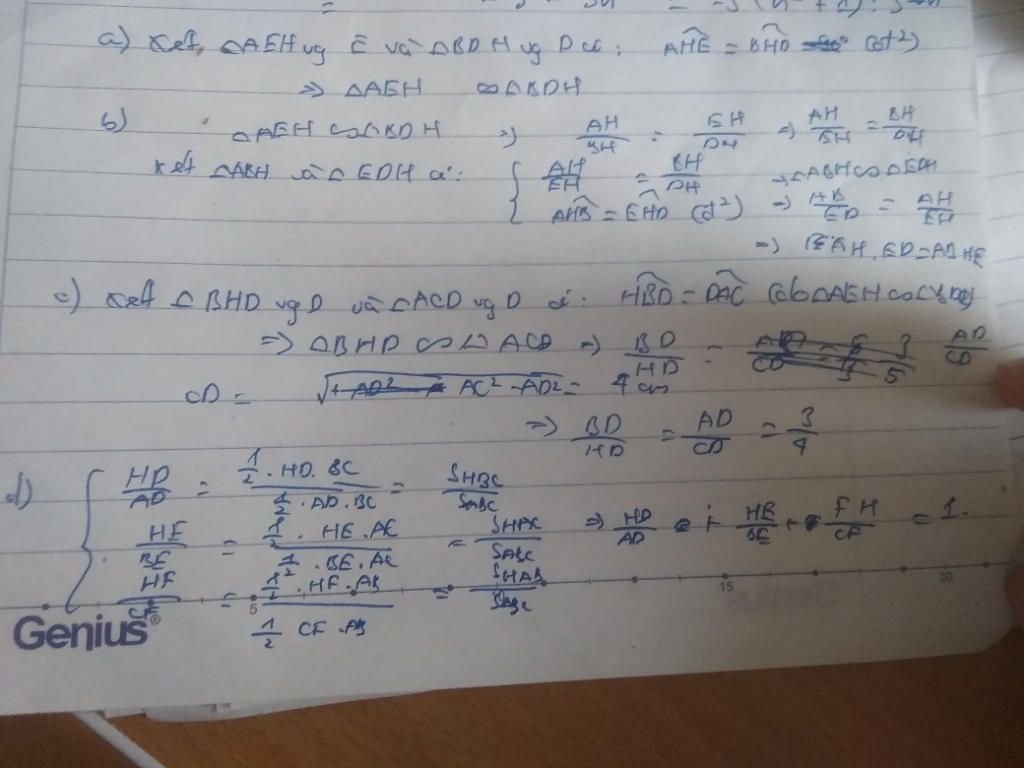 a) Xét △AEH vg E và △BDH vg D có: AHE = BHD (đ²)
=> △AEH ∽ △BDH
b) △AEH ∽ △BDH => AH/BH = EH/DH => AH/EH = BH/DH
Xét △ABH và △EDH có: { AH/EH = BH/DH => △ABH ∽ △EDH
AHB = EHD (đ²) => AB/ED = AH/EH
=> AH.ED = AB.HE
c) Xét △BHD vg D và △ACD vg D có: HBD = DAC (do △AEH ∽ △BDH)
=> △BHD ∽ △ACD => BD/HD = AD/CD
CD = √AC² - AD² = 4 cm
=> BD/HD = AD/CD = 3/4
d) { HD/AD = 1/2 . HD. BC / 1/2 . AD . BC = SHBC/SABC
HE/BE = 1/2 . HE . AC / 1/2 . BE . AC = SHAC/SABC => HD/AD + HE/BE + FH/CF = 1.
HF/CF = 1/2 . HF . AB / 1/2 CF . AB = SHAB/SABC
5 15 20
Genius®